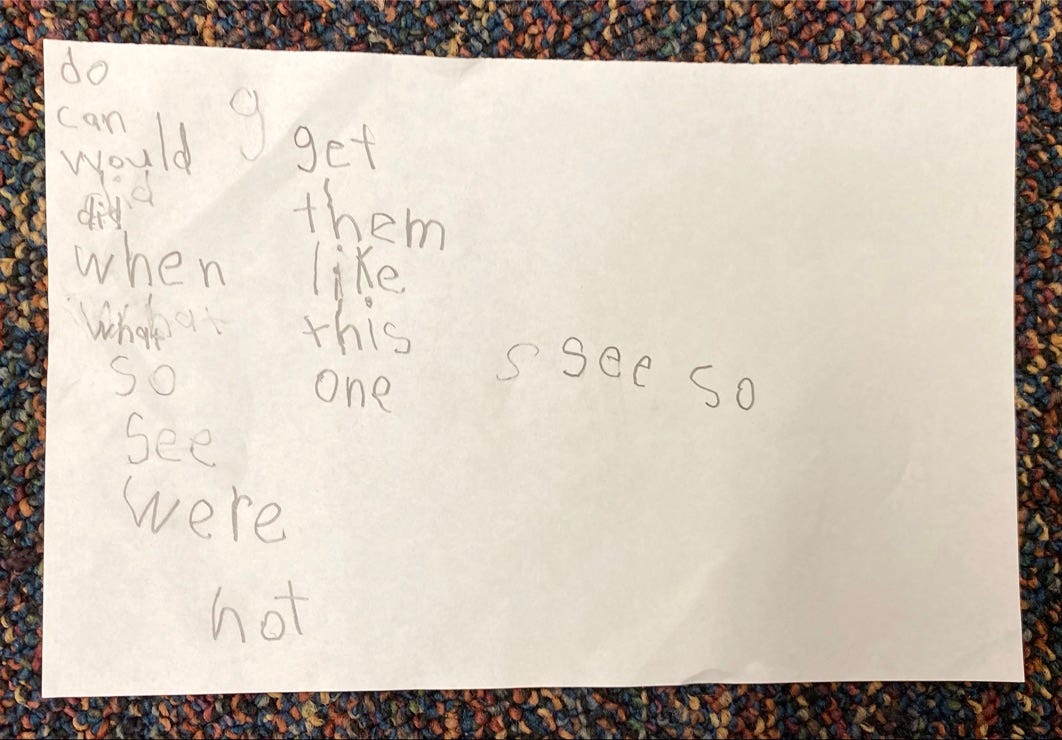 do
can
would
did
when
what
so
see
were
not
g
get
them
like
this
one
s see so